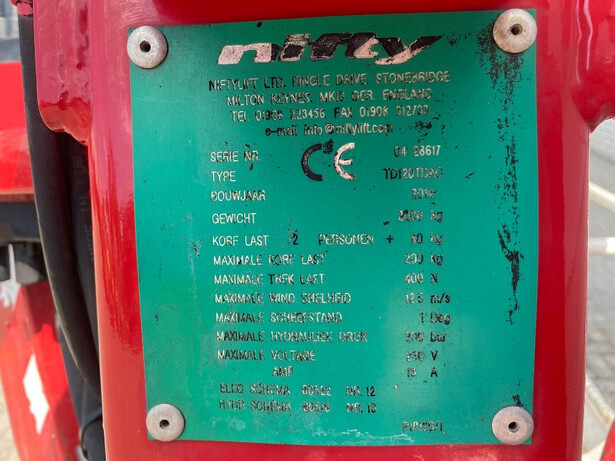 nifty
NIFTYLIFT LTD. FINGLE DRIVE, STONEBRIDGE
MILTON KEYNES, MK13 0ER, ENGLAND
TEL 01908 223456 FAX 01908 312733
e-mail info@niftylift.com
CE
SERIE NR. 04 28617
TYPE
BOUWJAAR
GEWICHT kg
KORF LAST 2 PERSONEN + 40 Kg
MAXIMALE KORF LAST 200 Kg
MAXIMALE TREK LAST 400 N
MAXIMALE WIND SNELHEID 12.5 m/s
MAXIMALE SCHEEFSTAND 1 Deg
MAXIMALE HYDRAULISK DRUK bar
MAXIMALE VOLTAGE V
AMP A
ELEC SCHEMA NR. 12
HYDR SCHEMA NR. 13